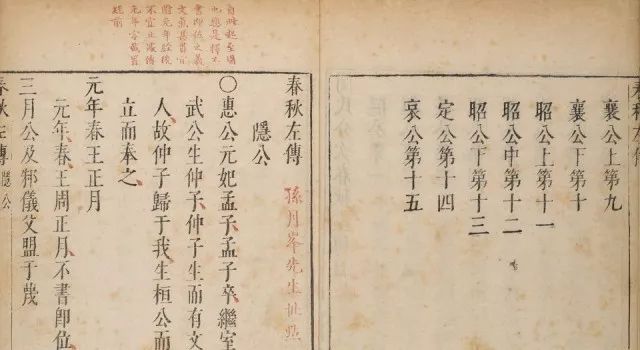 春秋左傳
襄公上第九
襄公下第十
昭公上第十一
昭公中第十二
昭公下第十三
定公第十四
哀公第十五
也應是釋不
書即位之義
元年字截置
經前
春秋左傳 孫月峯先生批點
隱公
○惠公元妃孟子孟子卒繼室
武公生仲子仲子生而有文
人故仲子歸于我生桓公而
立而奉之
元年春王正月
元年春王周正月不書即位
三月公及邾儀父盟于蔑
春秋左傳 隱公